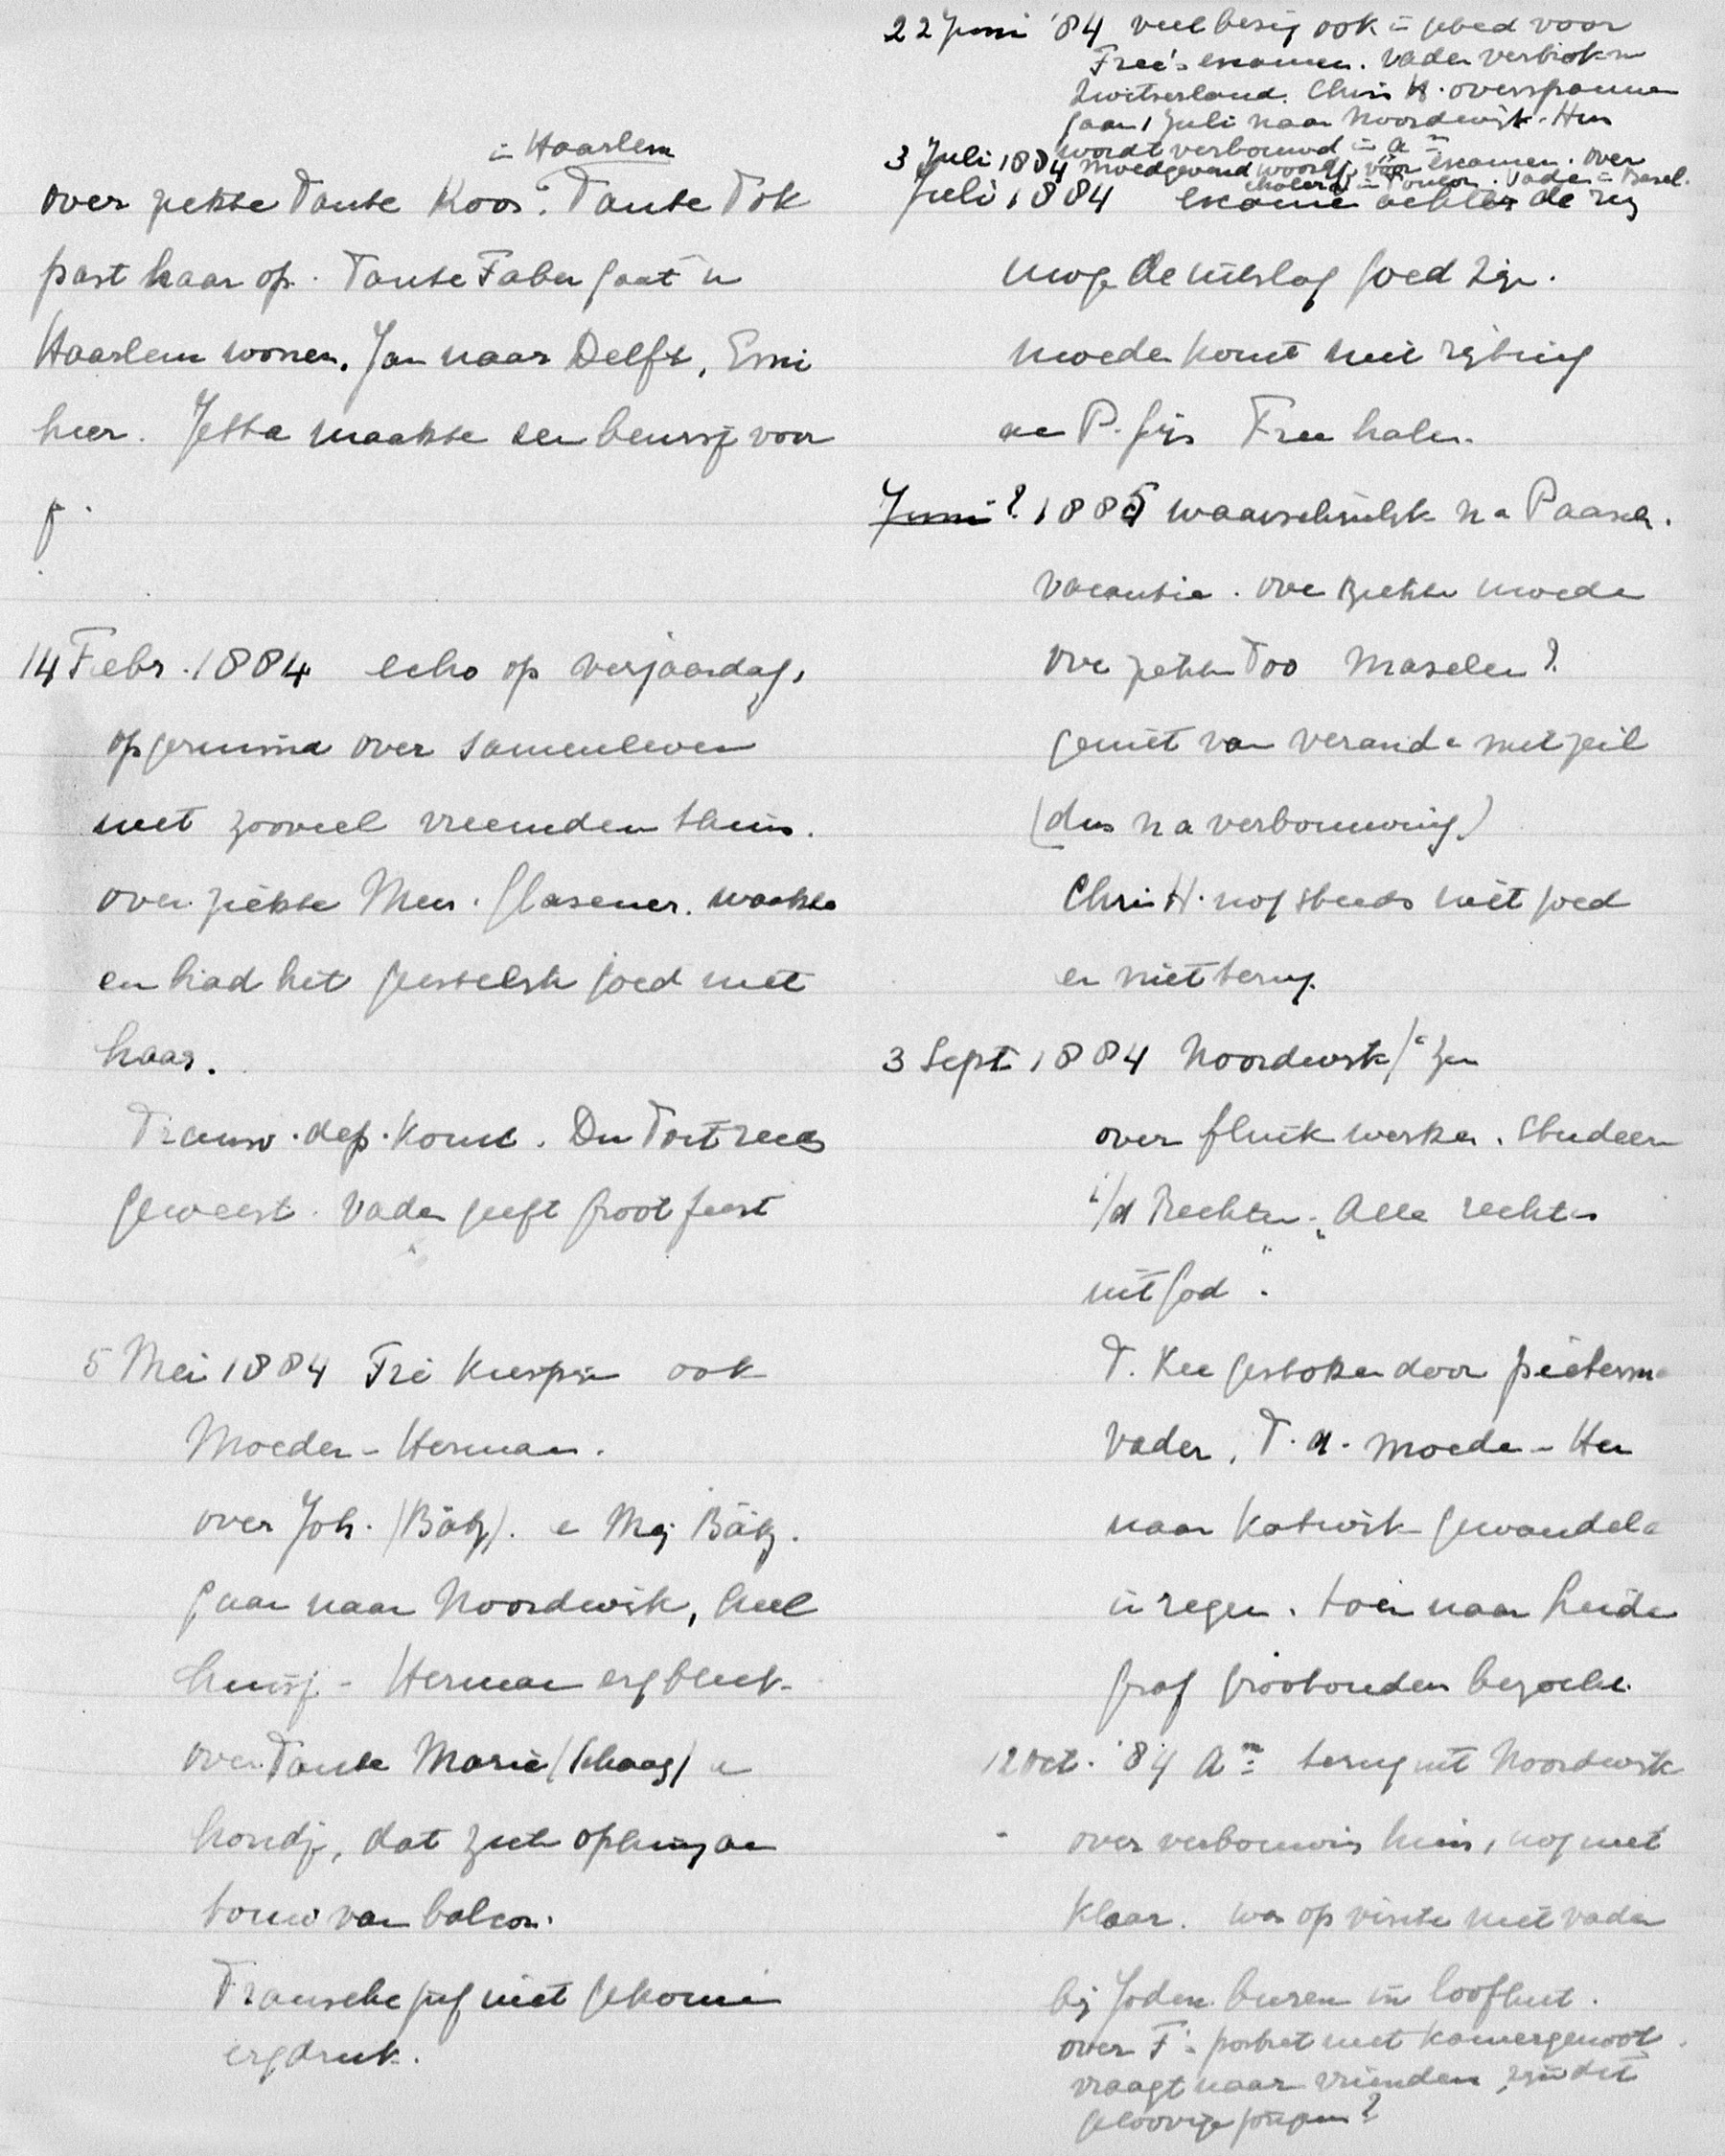 in Haarlem
over ziekte Tante Koos. Tante Tok
past haar op. Tante Faber gaat in
Haarlem wonen. Jan naar Delft, Erni
hier. Jetta maakte een beursje voor
f.
14 Febr. 1884 echo op verjaardag,
opgeruimd over samenleven
met zooveel vreemden thuis.
over ziekte Mevr. Glasener. waakte
en had het geestelijk goed met
haar.
Transv. dep. komt. Du Toit reeds
geweest. Vader geeft groot feest
5 Mei 1884 Fré Kiespijn ook
Moeder - Herman.
over Joh. (Bätz). en Mej Bätz.
gaan naar Noordwijk, heel
huisje - Herman erg bleek.
over Tante Marie (Schaay) en
hondje, dat zich ophing aan
touw van balcon.
Fransche juf niet gekomen
erg druk.
22 Juni '84 veel bezig ook in gebed voor
Free's examen. Vader vertrokken
Zwitserland. Chris H. overspannen
gaan 1 Juli naar Noordwijk. Huis
wordt verbouwd in A
3 Juli 1884 moedgevend woordje vóór examen. over
cholera in Toulon. Vader in Basel.
Juli 1884 examen achter de rug
moge de uitslag goed zijn.
moeder komt met rijtuig
en P. Gijs Free halen.
Juni? 1885 waarschijnlijk na Paasch.
vacantie. over ziekte moeder
over ziekte Too Mazelen?
geniet van veranda met zeil
(dus na verbouwing)
Chris H. nog steeds niet goed
en niet terug.
3 Sept 1884 Noordwijk a/zee
over flink werken. Studeer
i/d Rechten. "Alle rechten
uit God".
T. Kee gestoken door pieterman
Vader, T. A. moeder - Her
naar Katwijk gewandeld
in regen. toen naar Leiden
graf grootouders bezocht.
12 Oct. '84 Am terug uit Noordwijk
over verbouwing huis, nog niet
klaar. was op visite met vader
bij Joden buren in loofhut.
over F's portret met kamergenoot.
vraagt naar vrienden, zijn dit
geloovige jongens?